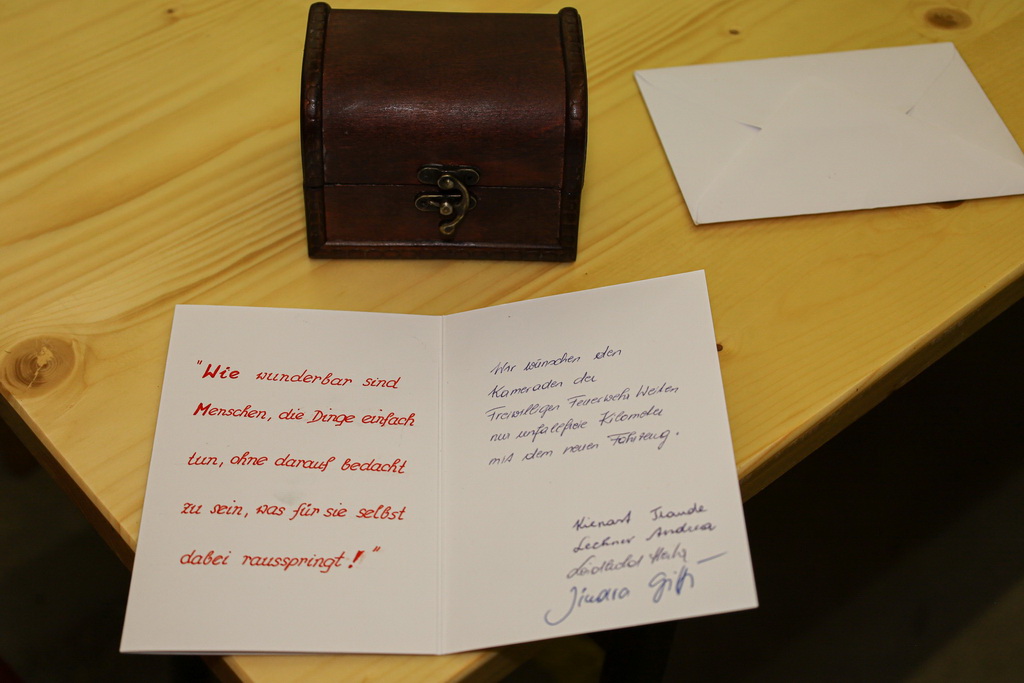 "Wie wunderbar sind
Menschen, die Dinge einfach
tun, ohne darauf bedacht
zu sein, was für sie selbst
dabei rausspringt!"
Wir wünschen den
Kameraden der
Freiwilligen Feuerwehr Weiten
nur unfallfreie Kilometer
mit dem neuen Fahrzeug.
Traude
Lechner Andrea